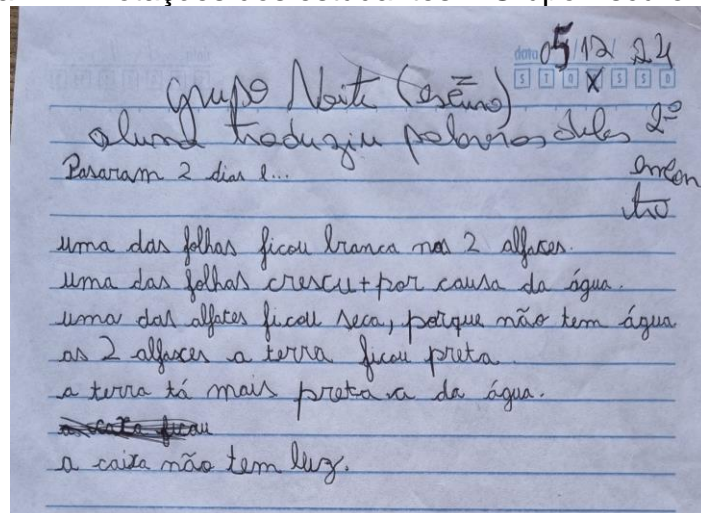 data 05/12/24
S T Q X S S D
Grupo Noite (escuro)
aluno traduziu palavras deles 2º
encon
tro
Pasaram 2 dias e...
uma das folhas ficou branca nas 2 alfaces.
uma das folhas crescu + por causa da água.
uma das alfaces ficou seca, porque não tem água
as 2 alfaxes a terra ficou preta.
a terra tá mais preta a da água.
a caixa ficou
a caixa não tem luz.